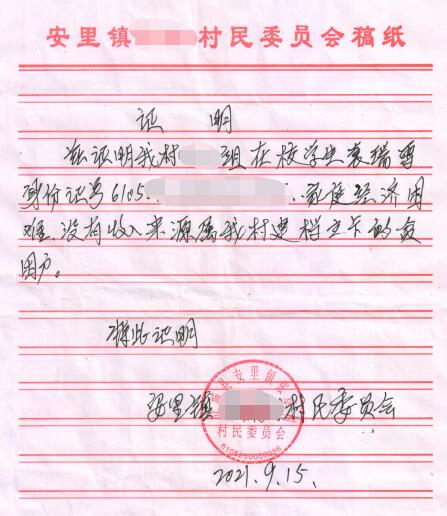 安里镇 村民委员会稿纸
证 明
兹证明我村 组在校学生袁瑞雪
身份证号6105 家庭经济困
难,没有收入来源属我村建档立卡的贫
困户。
特此证明
安里镇 村民委员会
县安里镇
村民委员会
2021.9.15.